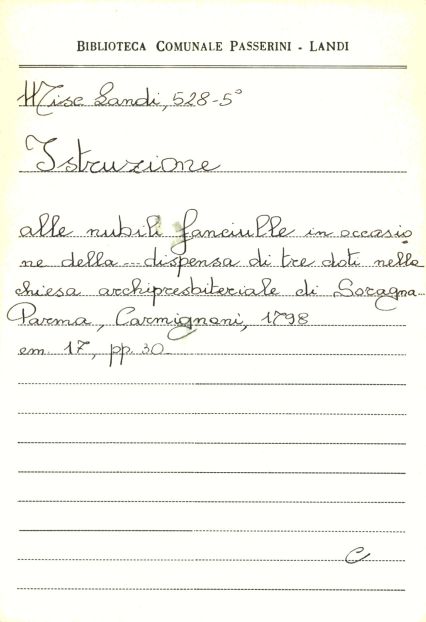 BIBLIOTECA COMUNALE PASSERINI - LANDI
Misc Landi, 528-5°
Istruzione
alle nubili fanciulle in occasio
ne della ... dispensa di tre doti nella
chiesa archipresbiteriale di Soragna...
Parma, Carmignani, 1798
cm. 17, pp. 30
C